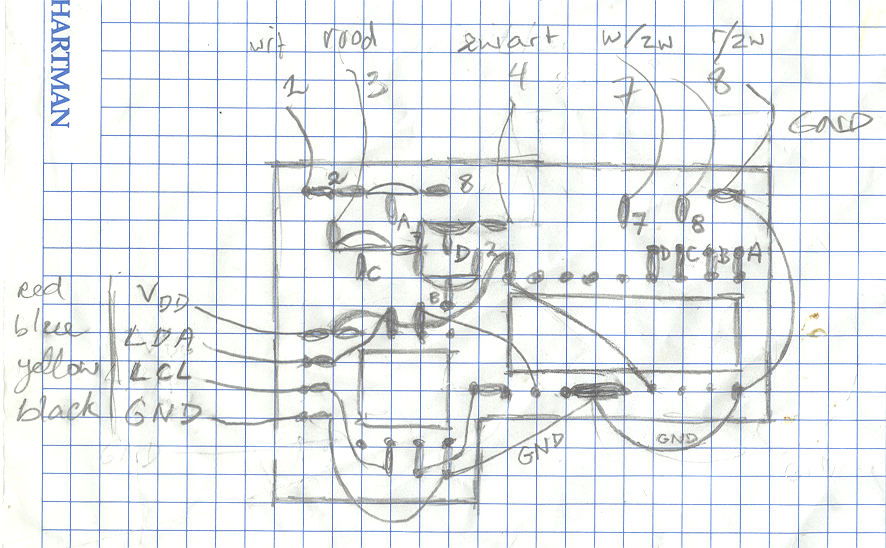 HARTMAN
wit rood zwart w/zw r/zw
2 3 4 7 8
GND
2 8
A 7 8
7 D 2 D C B A
C
B
red VDD
blue LDA
yellow LCL
black GND
GND GND